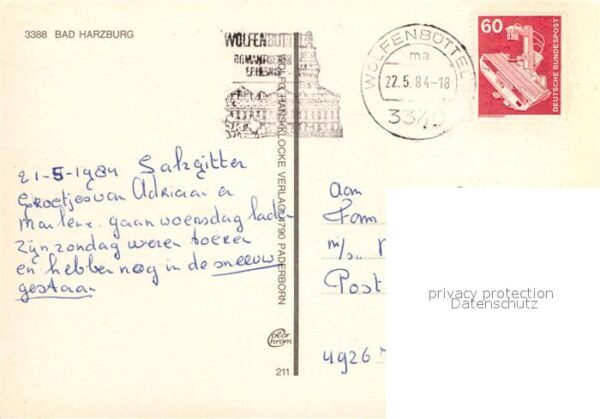 3388 BAD HARZBURG
WOLFENBÜTTEL
WOLFENBÜTTEL
ma
22.5.84-18
3340
60
DEUTSCHE BUNDESPOST
21-5-1984 Salzgitter
Groetjes van Adriaan en
gaan woensdag
zijn zondag weren
en hebben nog in de sneeuw
gestaan
HANS KLOCKE VERLAG 4790 PADERBORN
color
chrom
211
aan
Fam
m/s.
Post
4926
privacy protection
Datenschutz